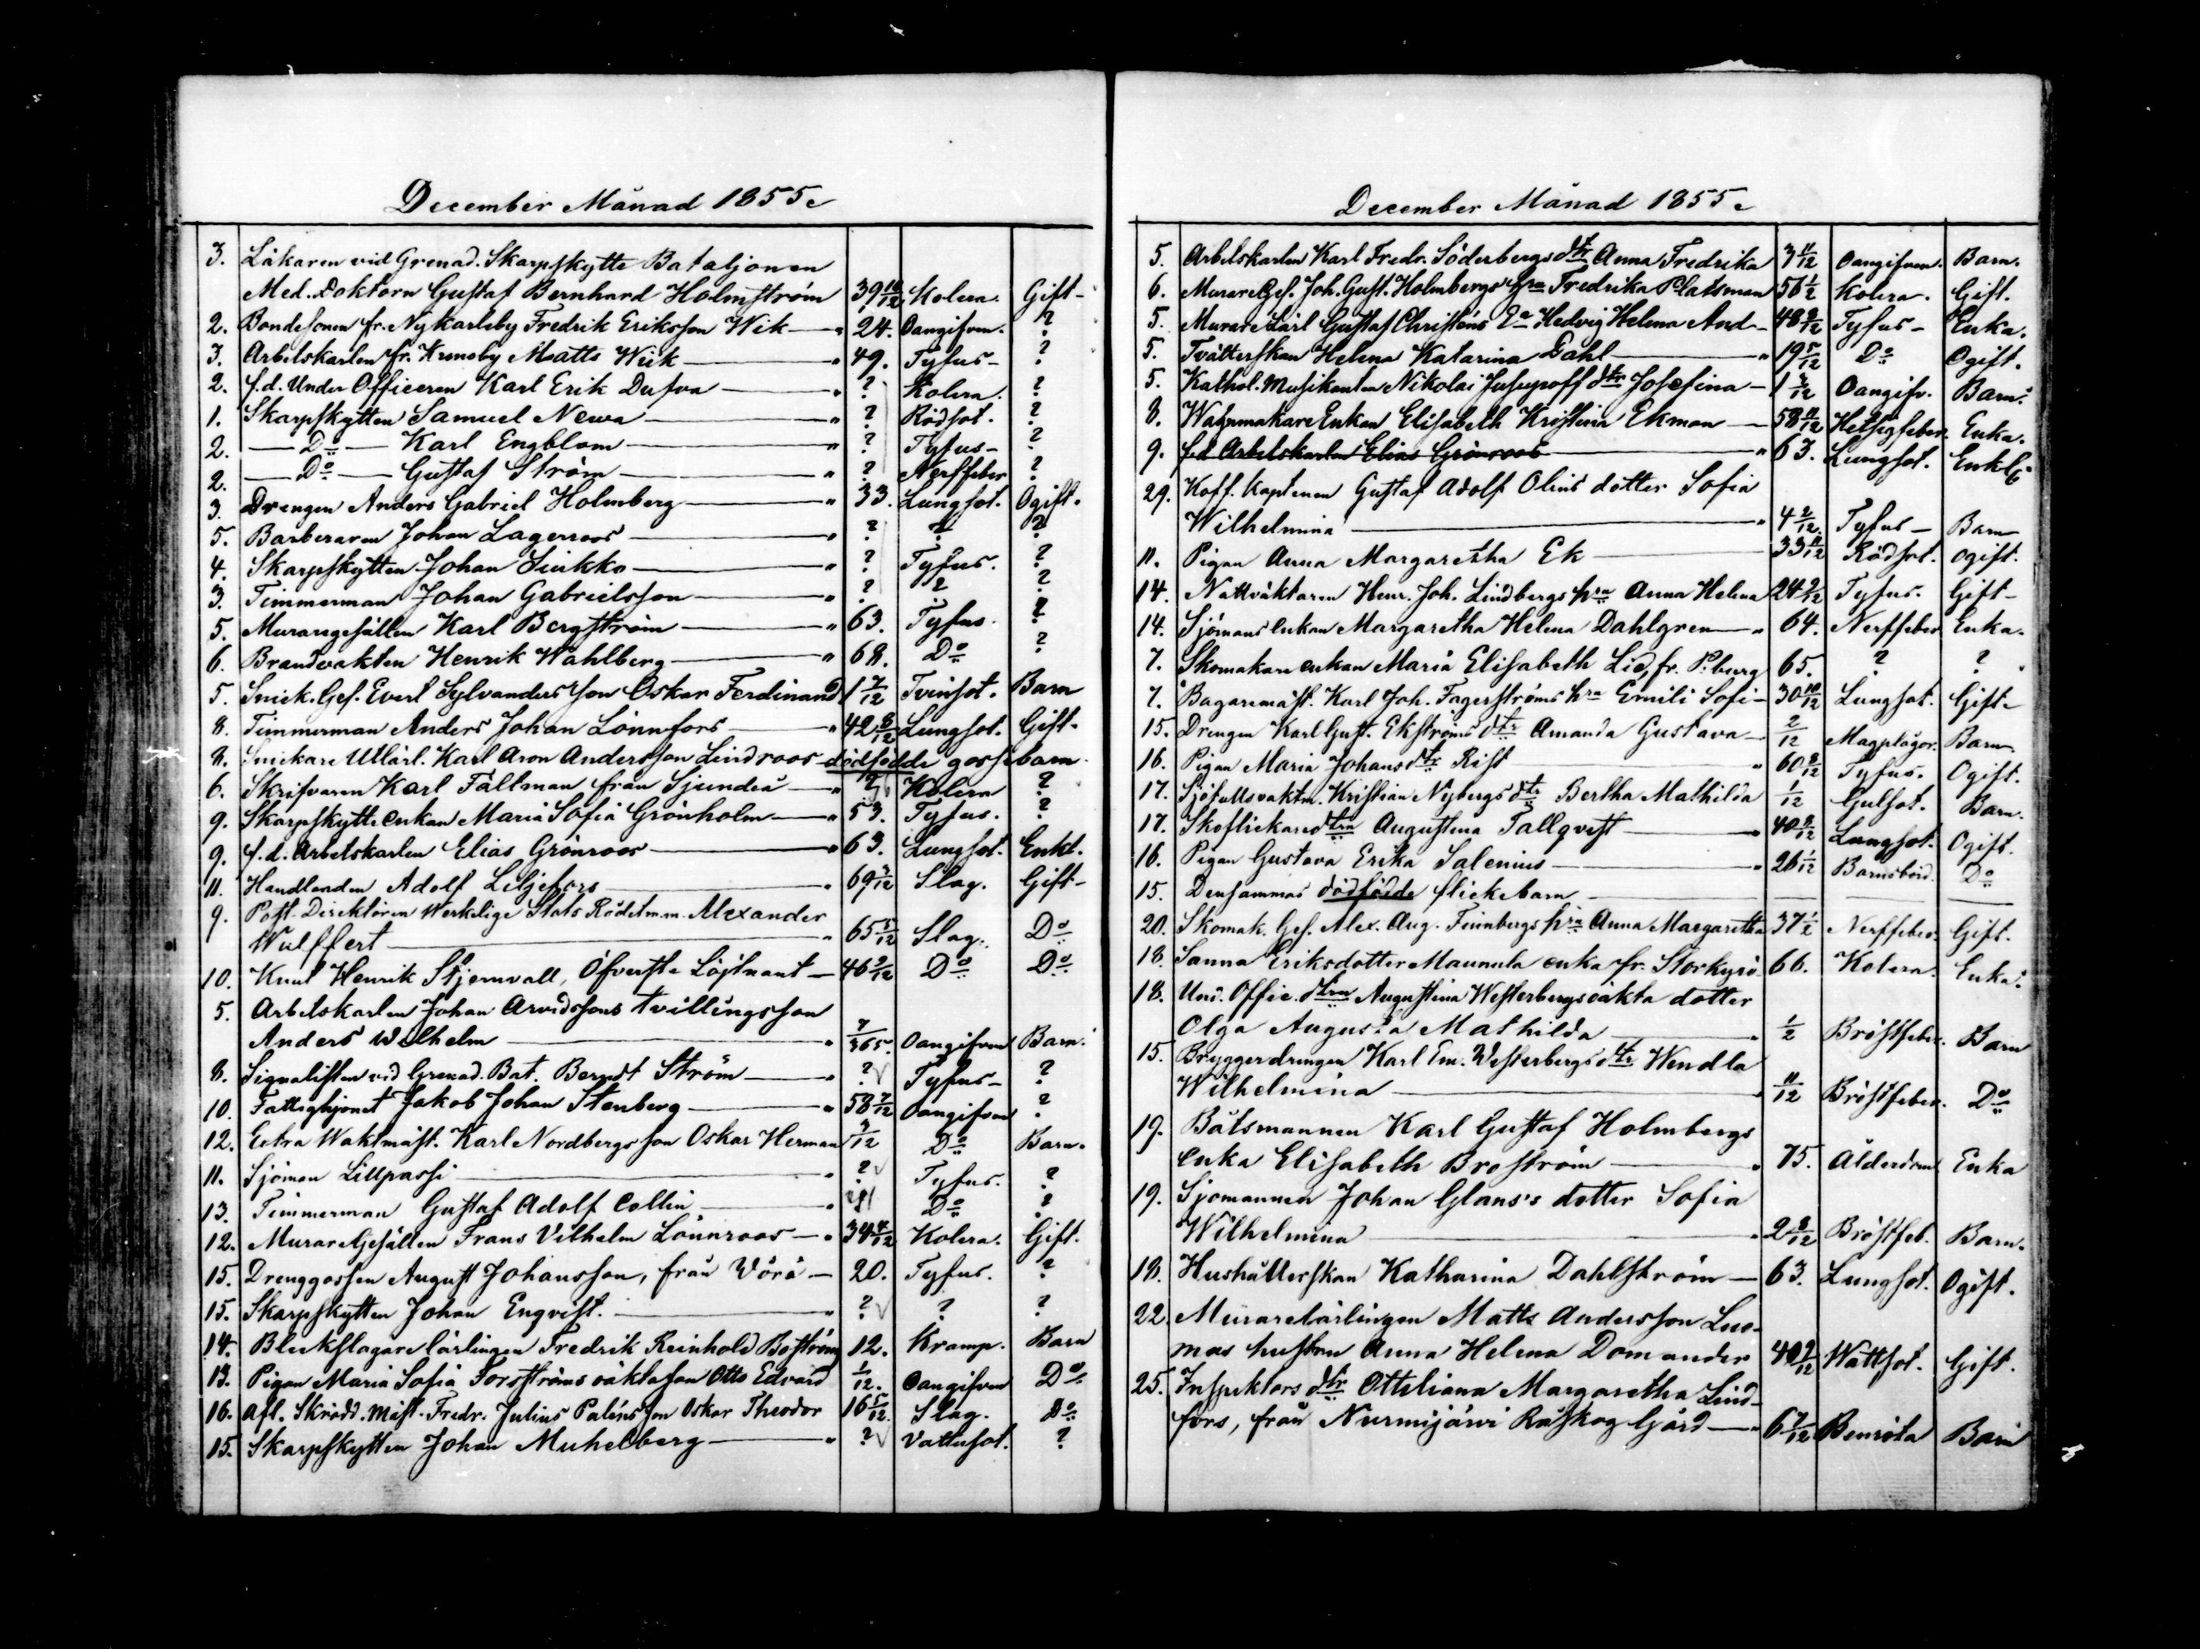 December Månad 1855.
3. Läkaren vid Grenad. Skarpskytte Bataljonen
Med. Doktorn Gustaf Bernhard Holmström 39 10/12 Kolera. Gift-
2. Bondesonen fr. Nykarleby Fredrik Eriksson Wik — " 24. Oangifven. ?
3. Arbetskarlen fr. Kronoby Matts Wiik — " 49. Tyfus- ?
2. f.d. Under Officeren Karl Erik Dufva — " ? Kolera. ?
1. Skarpskytten Samuel Newa — " ? Rödsot. ?
2. — Do — Karl Engblom — " ? Tyfus- ?
2. — Do — Gustaf Ström — " ? Nerffeber ?
3. Drengen Anders Gabriel Holmberg — " 33. Lungsot. Ogift.
5. Barberaren Johan Lagerroos — " ? ? ?
4. Skarpskytten Johan Sinkko — " ? Tyfus. ?
3. Timmerman Johan Gabrielsson — " ? ? ?
5. Muraregesällen Karl Bergström — " 63. Tyfus. ?
6. Brandvakten Henrik Wahlberg — " 68. Do ?
5. Snick. Ges. Evert Sylvanders son Oskar Ferdinand 1 7/12 Tvinsot. Barn
8. Timmerman Anders Johan Lönnfors — " 42 8/12 Lungsot. Gift-
8. Snickare Utlärl. Karl Aron Andersson Lindroos dödfödde gossebarn
6. Skrifvaren Karl Fältman från Sjundeå — " ? Kolera ?
9. Skarpskytte enkan Maria Sofia Grönholm — " 53. Tyfus. ?
9. f.d. Arbetskarlen Elias Grönroos — " 63. Lungsot. Enkl.
11. Handlanden Adolf Liljefors — " 69 3/12 Slag. Gift-
9. Post-Direktören Werklige Stats Rådet m.m. Alexander
Wulffert — " 65 5/12 Slag. Do
10. Knut Henrik Stjernvall, Öfverste Löjtnant — 46 9/12 Do Do
5. Arbetskarlen Johan Arvidssons tvillingsson
Anders Wilhelm — " 7/365. Oangifven Barn.
8. Signalisten vid Grenad. Bat. Berndt Ström — " ? Tyfus- ?
10. Fattighjonet Jakob Johan Stenberg — " 58 7/12 Oangifven ?
12. Extra Waktmäst. Karl Nordbergs son Oskar Herman 3/12 Do Barn.
11. Sjöman Lillpassi — " ? Tyfus. ?
13. Timmerman Gustaf Adolf Collin — " Do ?
12. MurareGesällen Frans Vilhelm Lönnroos — " 34 4/12 Kolera. Gift.
15. Drenggossen August Johansson, från Wörå — 20. Tyfus. ?
15. Skarpskytten Johan Enqvist. — " ? ? ?
14. Bleckslagarelärlingen Fredrik Reinhold Boström 12. Kramp. Barn
13. Pigan Maria Sofia Forsströms oäkta son Otto Edvard 1/12. Oangifven Do
16. Afl. Skrädd. Mäst. Fredr. Julius Paléns son Oskar Theodor 16 5/12. Slag. Do
15. Skarpskytten Johan Muhelberg — " ? Vattusot. ?
December Månad 1855.
5. Arbetskarlen Karl Fredr. Söderbergs dtr Anna Fredrika 3 11/12 Oangifven. Barn.
6. MurareGes. Joh. Gust. Holmbergs hra Fredrika Platsman 56 1/2 Kolera. Gift.
5. Murare Lärl Gustaf Christéns Ea Hedvig Helena And- 48 8/12 Tyfus- Enka.
5. Tvätterskan Helena Katarina Dahl — " 19 5/12 Do Ogift.
5. Kathol. Musikanten Nikolai Jusupoff dtr Josefina — 1 3/12 Oangifv. Barn.
8. Wagnmakare Enkan Elisabeth Kristina Ekman — 58 11/12 Hetsigfeber. Enka.
9. f.d. Arbetskarlen Elias Grönroos — " 63. Lungsot. Enkl.
29. Koff. Kaptenen Gustaf Adolf Olins dotter Sofia
Wilhelmina — " 4 2/12. Tyfus- Barn
11. Pigan Anna Margaretha Ek — 33 11/12 Rödsot. Ogift.
14. Nattväktaren Henr. Joh. Lindbergs hra Anna Helena 24 2/12 Tyfus. Gift-
14. Sjömans enkan Margaretha Helena Dahlgren — " 64. Nerffeber Enka.
7. Skomakare enkan Maria Elisabeth Lid, fr. P:burg 65. ? ?
7. Bagaremäst. Karl Joh. Fagerströms hra Emili Sofi- 30 10/12 Lungsot. Gift-
15. Drengen Karl Gust. Ekströms dtr Amanda Gustava 2/12 Magplågor. Barn.
16. Pigan Maria Johans dtr Rist — " 60 8/12 Tyfus. Ogift.
17. Sjötullsvaktm. Kristian Nybergs dtr Bertha Mathilda 1/12 Gulsot. Barn.
17. Skoflickare dtrn Augustina Tallqvist — " 40 8/12 Lungsot. Ogift.
16. Pigan Gustava Erika Salenius — " 26 1/12 Barnsbörd. Do
15. Densammas dödfödde flickebarn — — —
20. Skomak. Ges. Alex. Aug. Finnbergs hra Anna Margaretha 37 1/2 Nerffeber. Gift.
18. Sanna Eriksdotter Maunula enka fr. Storkyro 66. Kolera. Enka.
18. Und. Offic. dtrn Augustina Westerbergs oäkta dotter
Olga Augusta Mathilda — " 1/2 Bröstfeber. Barn
15. Bryggerdrengen Karl Em. Westerbergs dtr Wendla
Wilhelmina — " 11/12 Bröstfeber. Do
19. Båtsmannen Karl Gustaf Holmbergs
enka Elisabeth Broström — " 75. Ålderdom Enka
19. Sjömannen Johan Glans's dotter Sofia
Wilhelmina — " 2 8/12 Bröstfeb. Barn.
18. Hushållerskan Katharina Dahlström — 63. Lungsot. Ogift.
22. Murarelärlingen Matts Andersson Luo-
mas hustru Anna Helena Domander 40 9/12 Wattsot. Gift.
25. Inspektors dtr Ottiliana Margaretha Lind-
fors, från Nurmijärvi Råskog Gård — " 6 7/12 Benröta Barn